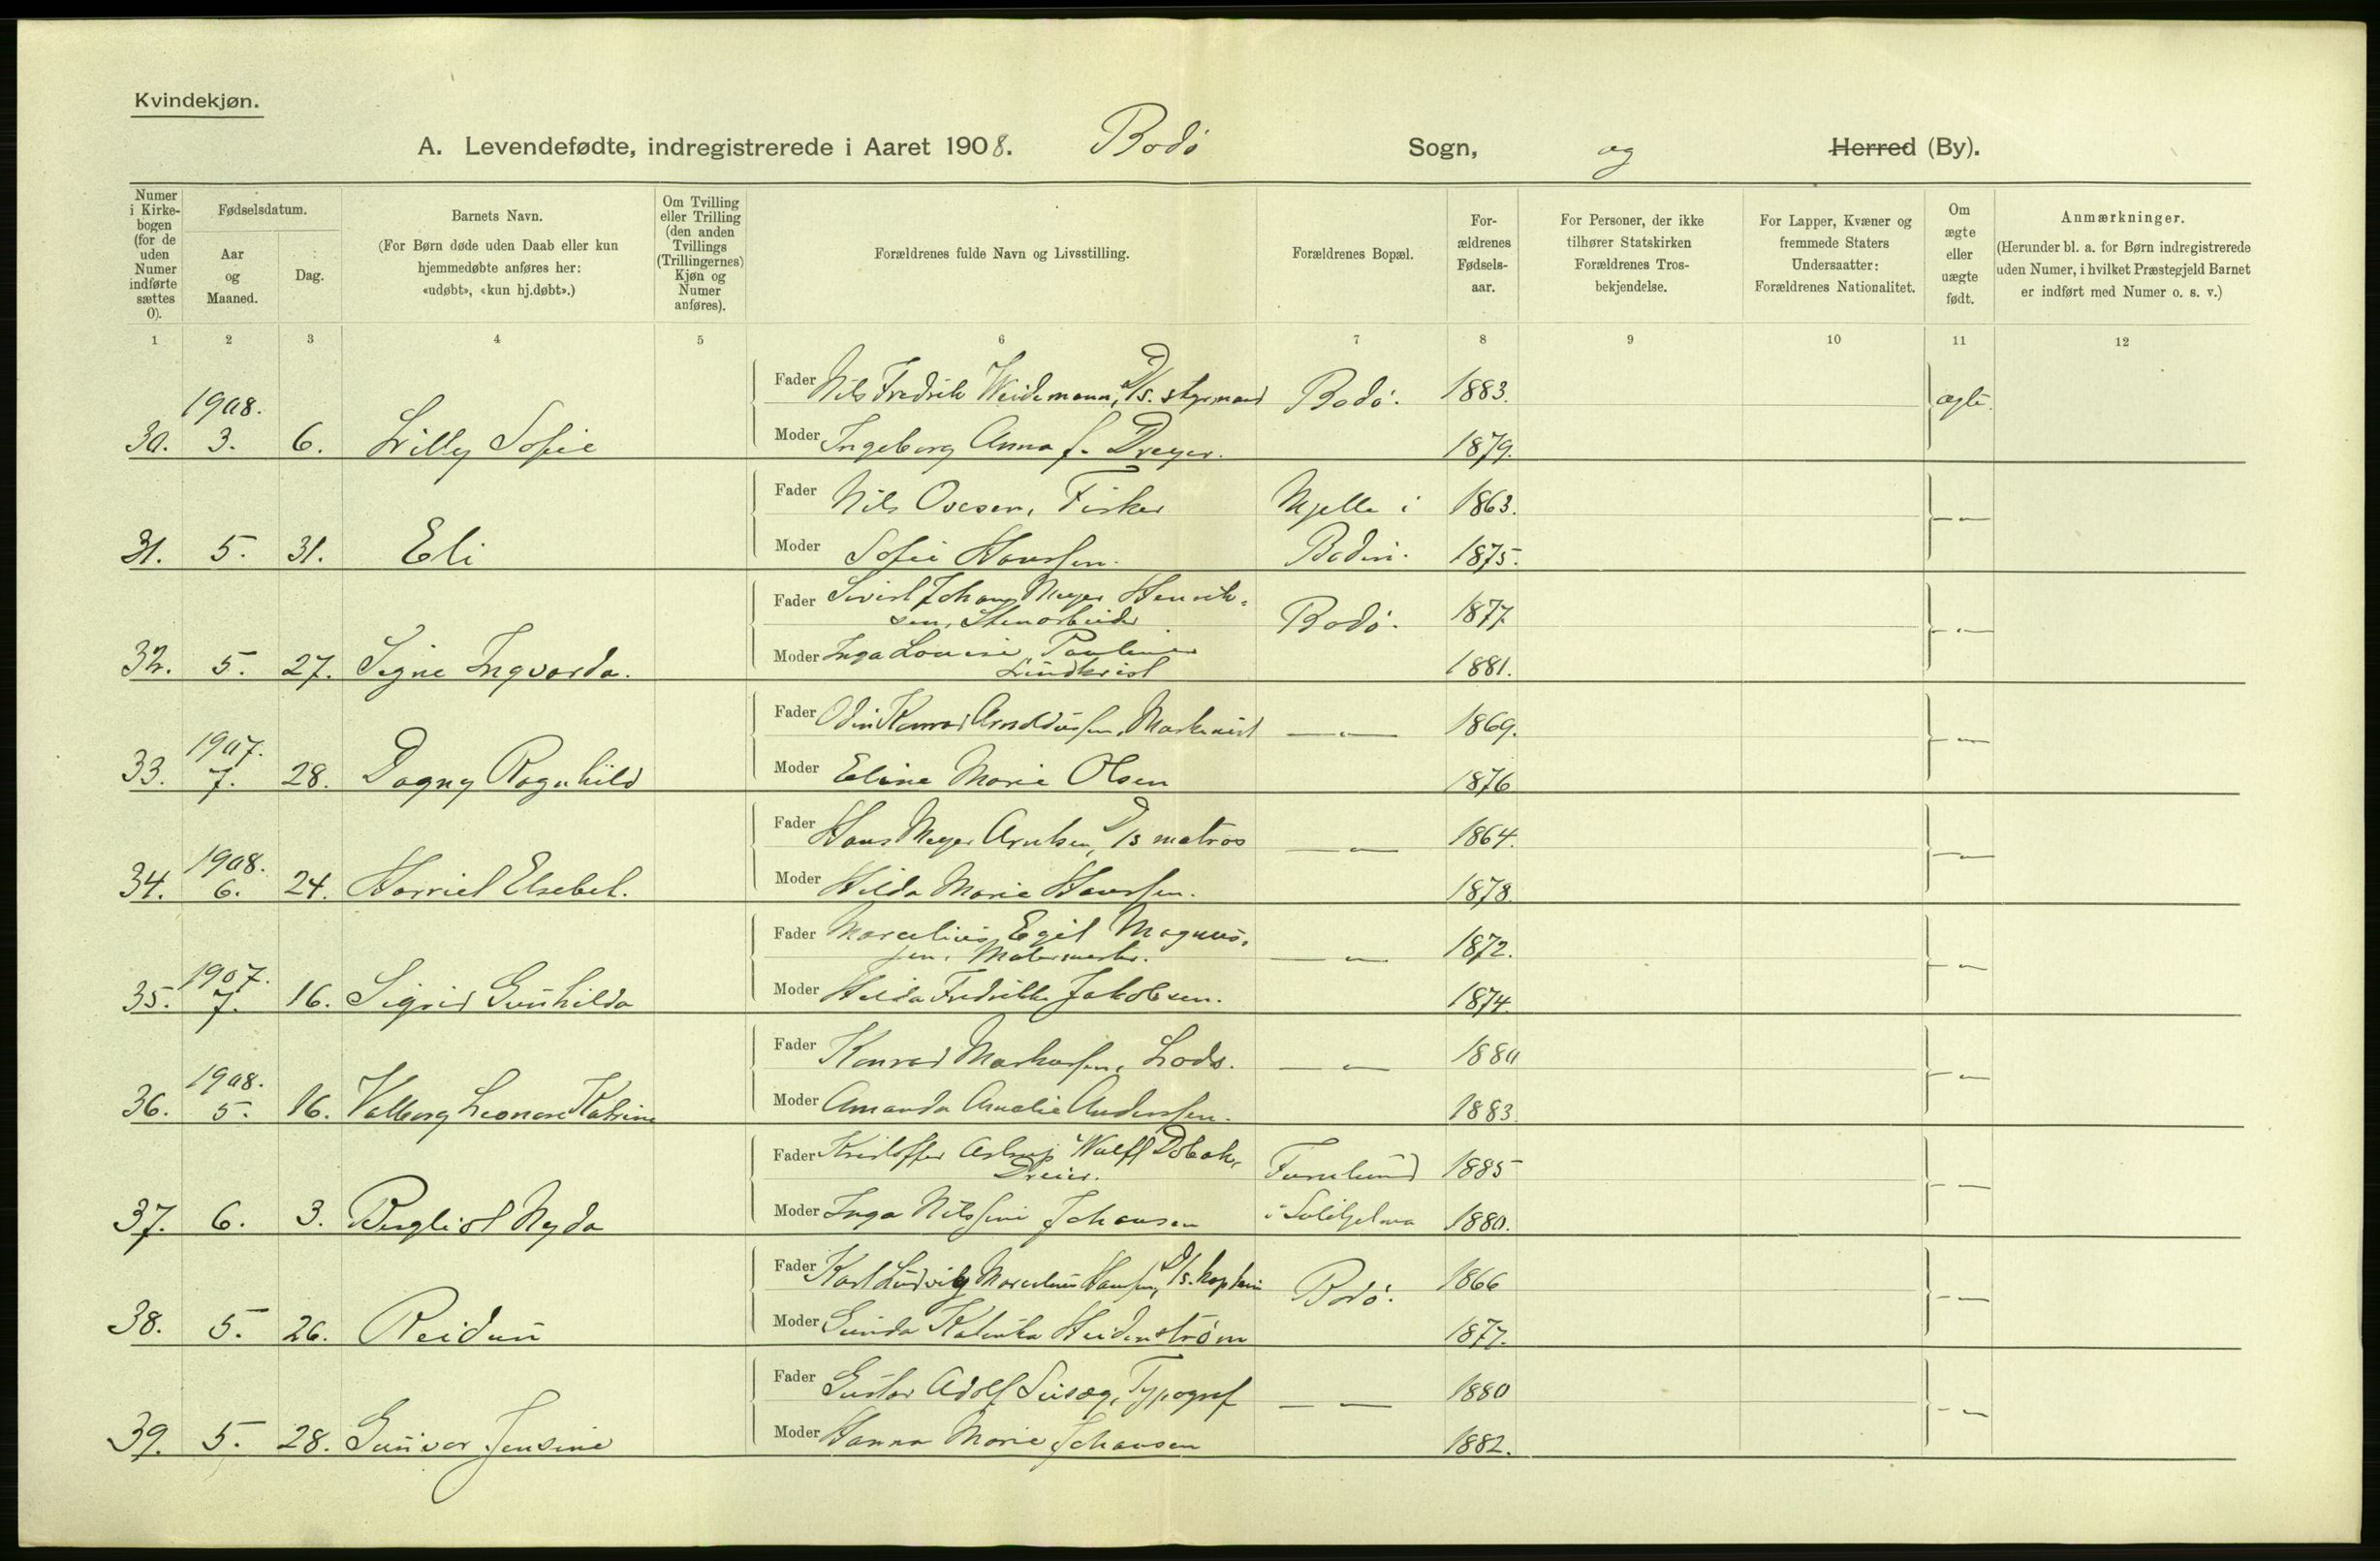 Kvindekjøn.
A. Levendefødte, indregistrerede i Aaret 1908. Bodø Sogn, og Herred (By).
Numer i Kirkebogen (for de uden Numer indførte sættes 0).
Fødselsdatum.
Aar og Maaned.
Dag.
Barnets Navn.
(For Børn døde uden Daab eller kun hjemmedøbte anføres her: «udøbt», «kun hj.døbt».)
Om Tvilling eller Trilling (den anden Tvillings (Trillingernes) Kjøn og Numer anføres).
Forældrenes fulde Navn og Livsstilling.
Forældrenes Bopæl.
Forældrenes Fødselsaar.
For Personer, der ikke tilhører Statskirken Forældrenes Trosbekjendelse.
For Lapper, Kvæner og fremmede Staters Undersaatter: Forældrenes Nationalitet.
Om ægte eller uægte født.
Anmærkninger.
(Herunder bl. a. for Børn indregistrerede uden Numer, i hvilket Præstegjeld Barnet er indført med Numer o. s. v.)
1 2 3 4 5 6 7 8 9 10 11 12
1908.
Fader Nils Fredrik Weidemann, D/s. styrmand Bodø. 1883. ægte.
30. 3. 6. Lilly Sofie Moder Ingeborg Anna f. Dreyer. 1879.
Fader Nils Ovesen, Fisker Mjelle i 1863. — " —
31. 5. 31. Eli Moder Sofie Hanssen. Bodin. 1875.
Fader Sivert Johan Meyer Henrik-
sen, Stenarbeider Bodø. 1877 — " —
32. 5. 27. Signe Ingvarda. Moder Inga Lovise Pauline
Lindkvist 1881.
1907.
Fader Odin Konrad Arnoldussen, Maskinist — " — 1869. — " —
33. 7. 28. Dagny Ragnhild Moder Eline Marie Olsen 1876
1908.
Fader Hans Meyer Arntsen, D/s matros — " — 1864. — " —
34. 6. 24. Harriet Elsebet. Moder Hilda Marie Hanssen. 1878.
1907.
Fader Marcelius Egil Magnus-
sen, Malermester. — " — 1872. — " —
35. 7. 16. Sigrid Gunhilda Moder Hilda Fredrikke Jakobsen. 1874.
1908.
Fader Konrad Markussen, Lods. — " — 1880 — " —
36. 5. 16. Valborg Leonore Katrine Moder Amanda Amalie Anderssen. 1883.
Fader Kristoffer Astrup Wulff Dobak,
Dreier. Furulund 1885 — " —
37. 6. 3. Bergliot Nyda Moder Inga Nilssine Johansen i Sulitjelma 1880.
Fader Karl Ludvig Marcelius Hansen, D/s. kaptein Bodø. 1866 — " —
38. 5. 26. Reidun Moder Gunda Katinka Heidenstrøm 1877.
Fader Gustav Adolf Typograf — " — 1880 — " —
39. 5. 28. Gunvor Jensine Moder Hanna Marie Johansen 1882.